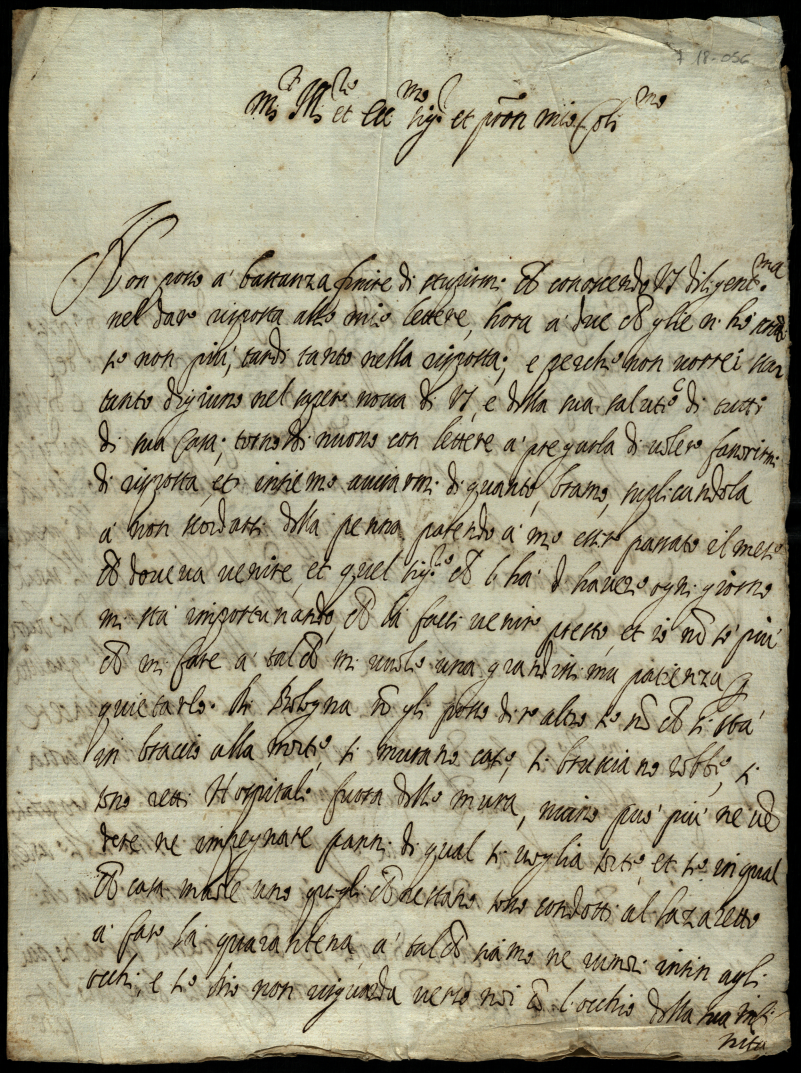 7 18-056
M.to Ill.re et Ecc.mo Sig.r et pron mio Col.mo
Non posso à bastanza finire di stupirmi che conoscendo VS diligent.ma
nel dare risposta alle mie lettere, hora à due che glie n'ho
se non più, tardi tanto nella risposta; e perche non uorrei star
tanto digiuno nel saper noua di VS, e della sua salute e di tutti
di sua Casa, torno di nuouo con lettere à pregarla di uolere fauorirmi
di risposta et insieme auisarmi di quanto bramo, suplicandola
à non scordarsi della penna, parendo à me essere passato il mese
che doueua uenire, et quel Sig.re che l'hà d'hauere ogni giorno
mi stà importunando, che la facci uenire presto, et io nō sò più
che mi fare à tal che mi uuole una grandissima patienza p
quietarlo. Di Bologna nō gli posso dire altro se nō che si stà
in braccio alla morte, si murano case, si brusciano robbe, si
sono retti Hospitali fuora delle mura, niuno puo' più ne ue
dere ne impegnare panni di qual si uoglia sorte, et se in qual
che casa more uno quegli che restano sono condotti al lazaretto
à fare la quarantena, à tal che siamo ne runori insin agli
occhi, e se Dio non risguarda uerso noi cō l'occhio della sua infi
nita